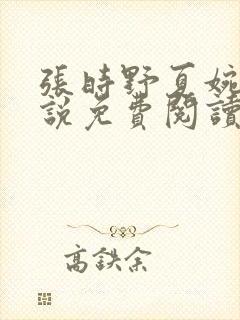 張時野夏婉
說免費閱讀
高鉄余